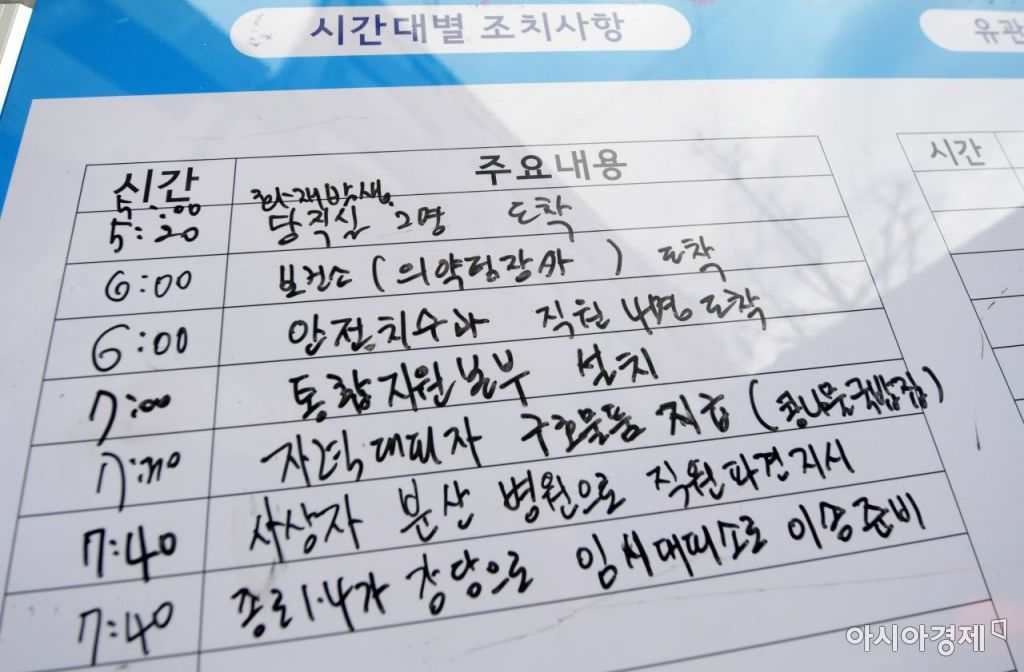 시간대별 조치사항
유관
시간 주요내용
5:00 화재발생
5:20 당직실 2명 도착
6:00 보건소 (의약팀장 外) 도착
6:00 안전치수과 직원 4명 도착
7:00 통합지원본부 설치
7:30 자력대피자 구호물품 지급 (콩나물국밥집)
7:40 사상자 분산 병원으로 직원파견지시
7:40 종로1·4가 강당으로 임시대피소로 이송준비
시간
아시아경제